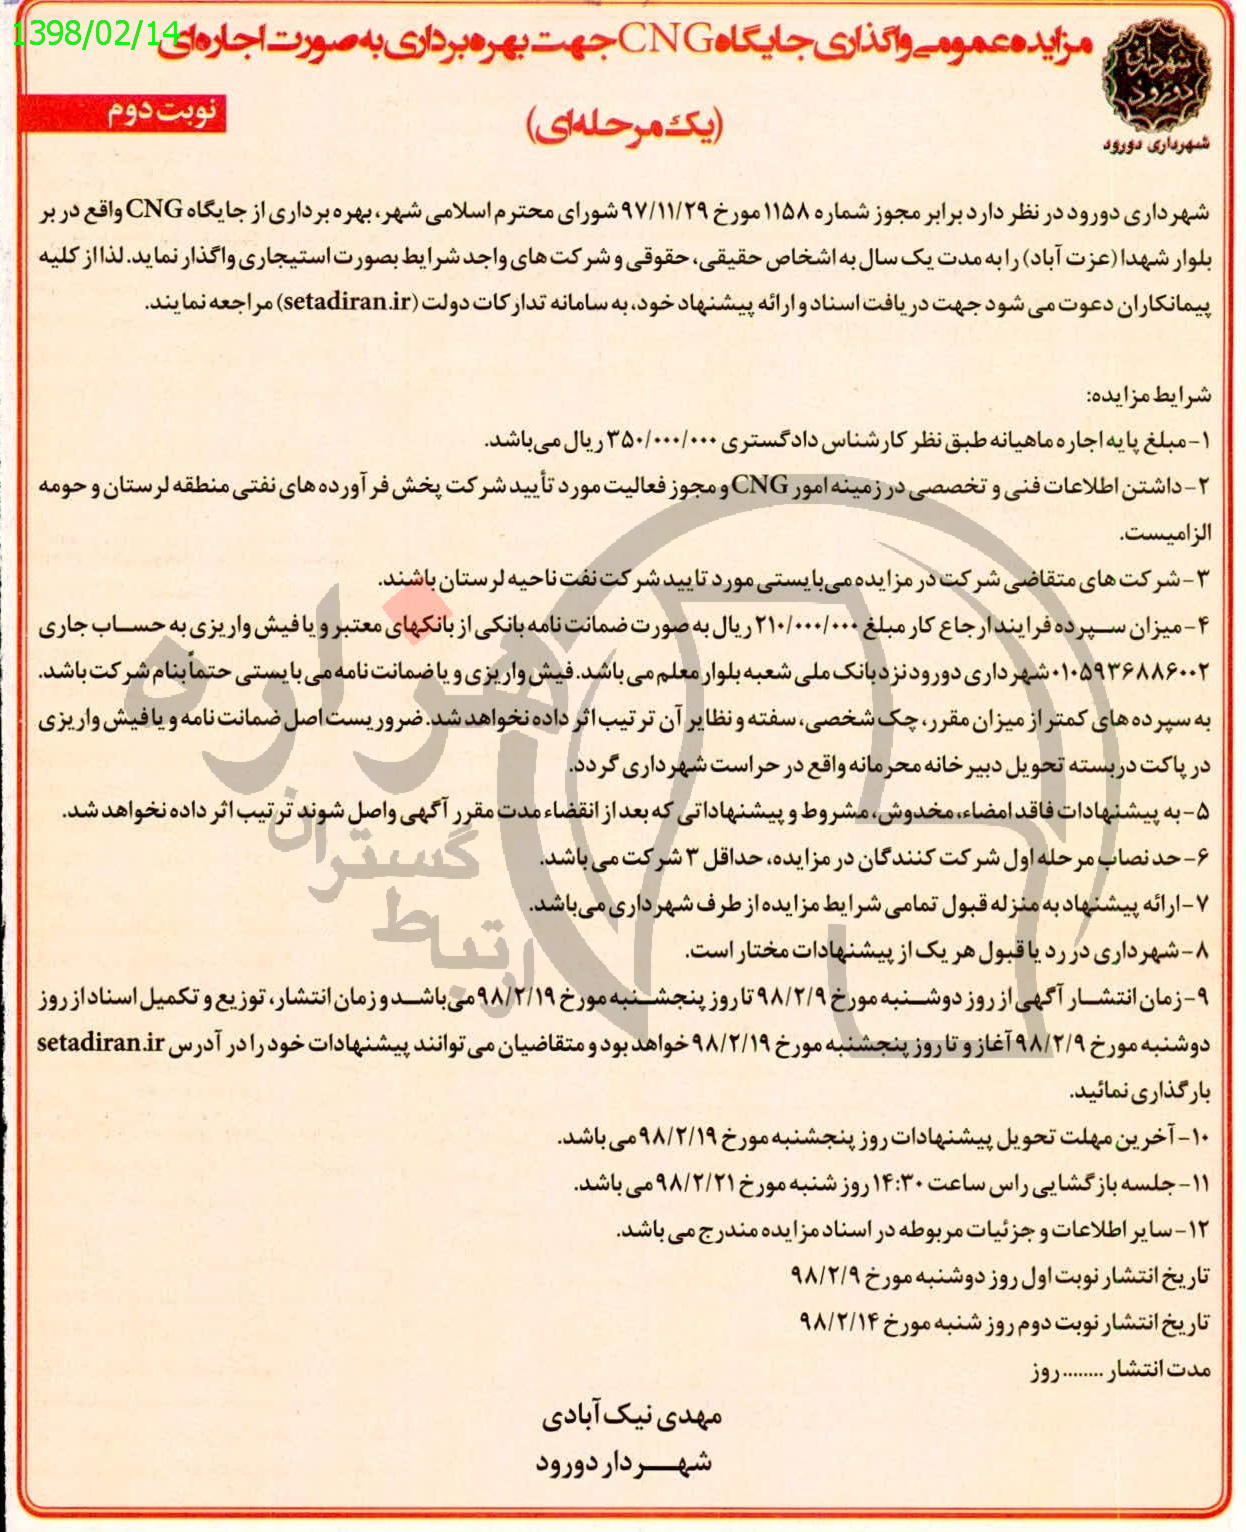 1398/02/14
مزایده عمومی واگذاری جایگاه CNG جهت بهره برداری به صورت اجاره‌ای
شهرداری دورود
نوبت دوم
(یک مرحله‌ای)
شهرداری دورود
شهرداری دورود در نظر دارد برابر مجوز شماره ۱۱۵۸ مورخ ۹۷/۱۱/۲۹ شورای محترم اسلامی شهر، بهره برداری از جایگاه CNG واقع در بر
بلوار شهدا (عزت آباد) را به مدت یک سال به اشخاص حقیقی، حقوقی و شرکت های واجد شرایط بصورت استیجاری واگذار نماید. لذا از کلیه
پیمانکاران دعوت می شود جهت دریافت اسناد و ارائه پیشنهاد خود، به سامانه تدارکات دولت (setadiran.ir) مراجعه نمایند.
شرایط مزایده:
۱- مبلغ پایه اجاره ماهیانه طبق نظر کارشناس دادگستری ۳۵۰/۰۰۰/۰۰۰ ریال می‌باشد.
۲- داشتن اطلاعات فنی و تخصصی در زمینه امور CNG و مجوز فعالیت مورد تأیید شرکت پخش فرآورده های نفتی منطقه لرستان و حومه
الزامیست.
۳- شرکت های متقاضی شرکت در مزایده می‌بایستی مورد تایید شرکت نفت ناحیه لرستان باشند.
۴- میزان سپرده فرایند ارجاع کار مبلغ ۲۱۰/۰۰۰/۰۰۰ ریال به صورت ضمانت نامه بانکی از بانکهای معتبر و یا فیش واریزی به حساب جاری
۰۱۰۵۹۳۶۸۸۶۰۰۲ شهرداری دورود نزد بانک ملی شعبه بلوار معلم می باشد. فیش واریزی و یا ضمانت نامه می بایستی حتماً بنام شرکت باشد.
به سپرده های کمتر از میزان مقرر، چک شخصی، سفته و نظایر آن ترتیب اثر داده نخواهد شد. ضروریست اصل ضمانت نامه و یا فیش واریزی
در پاکت دربسته تحویل دبیرخانه محرمانه واقع در حراست شهرداری گردد.
۵- به پیشنهادات فاقد امضاء، مخدوش، مشروط و پیشنهاداتی که بعد از انقضاء مدت مقرر آگهی واصل شوند ترتیب اثر داده نخواهد شد.
۶- حد نصاب مرحله اول شرکت کنندگان در مزایده، حداقل ۳ شرکت می باشد.
۷- ارائه پیشنهاد به منزله قبول تمامی شرایط مزایده از طرف شهرداری می‌باشد.
۸- شهرداری در رد یا قبول هر یک از پیشنهادات مختار است.
۹- زمان انتشار آگهی از روز دوشنبه مورخ ۹۸/۲/۹ تا روز پنجشنبه مورخ ۹۸/۲/۱۹ می‌باشد و زمان انتشار، توزیع و تکمیل اسناد از روز
دوشنبه مورخ ۹۸/۲/۹ آغاز و تا روز پنجشنبه مورخ ۹۸/۲/۱۹ خواهد بود و متقاضیان می توانند پیشنهادات خود را در آدرس setadiran.ir
بارگذاری نمائید.
۱۰- آخرین مهلت تحویل پیشنهادات روز پنجشنبه مورخ ۹۸/۲/۱۹ می باشد.
۱۱- جلسه بازگشایی راس ساعت ۱۴:۳۰ روز شنبه مورخ ۹۸/۲/۲۱ می باشد.
۱۲- سایر اطلاعات و جزئیات مربوطه در اسناد مزایده مندرج می باشد.
تاریخ انتشار نوبت اول روز دوشنبه مورخ ۹۸/۲/۹
تاریخ انتشار نوبت دوم روز شنبه مورخ ۹۸/۲/۱۴
مدت انتشار ........ روز
مهدی نیک آبادی
شهردار دورود
هزاره
گستران
ارتباط